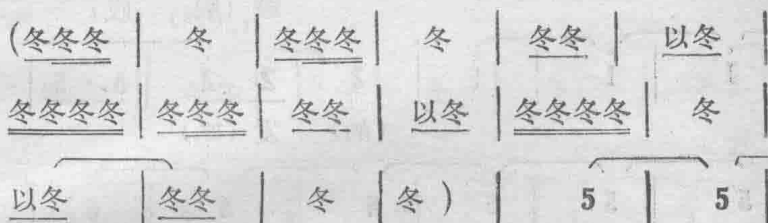 (冬冬冬 | 冬 | 冬冬冬 | 冬 | 冬冬 | 以冬 |
冬冬冬冬 | 冬冬冬 | 冬冬 | 以冬 | 冬冬冬冬 | 冬 |
以冬 | 冬冬 | 冬 | 冬 ) | 5 | 5 |